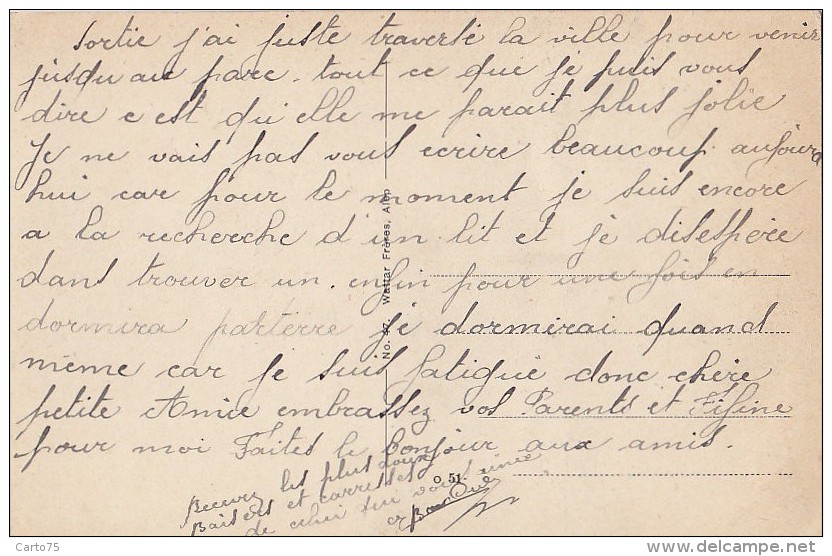 Sortie j'ai juste traversé la ville pour venir
jusqu au parc. tout ce que je puis vous
dire c est qu'elle me parait plus jolie
Je ne vais pas vous ecrire beaucoup aujourd
hui car pour le moment je suis encore
a la recherche d'un lit et je disespère
dans trouver un. enfin pour une fois en
dormira parterre je dormirai quand
même car je suis fatigué donc chère
petite Amie embrassez vos Parents et Fifine
pour moi Faites le bonjour aux amis.
Recevez les plus doux
Baisers et carresses
de celui qui vous aime
No. 47. Wattar Frères, Alep
51
Carto75
www.delcampe.net